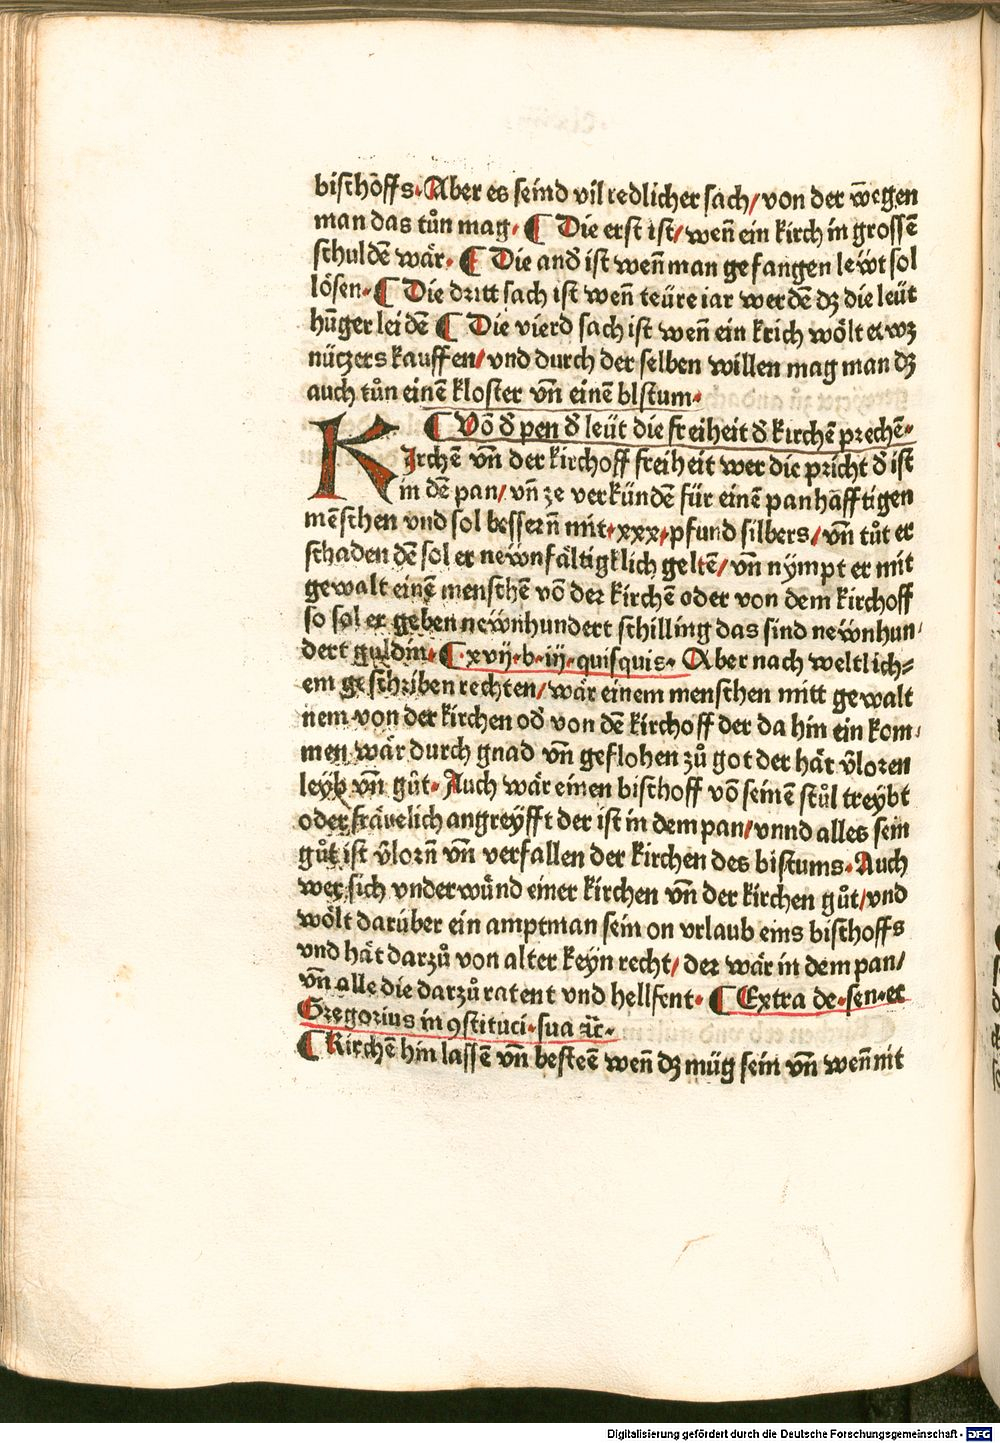 bischoffs. Aber es seind vil redlicher sach/ von der wegen
man das tůn mag. ¶ Die erst ist/ weñ ein kirch in grossē
schuldē wär. ¶ Die and̄ ist weñ man gefangen lewt sol
lösen. ¶ Die dritt sach ist weñ teüre iar werdē dꝫ die leüt
hūger leidē ¶ Die vierd sach ist weñ ein krich wölt etwꝫ
nützers kauffen/ vnd durch der selben willen mag man dꝫ
auch tůn einē kloster vñ einē bistum.
¶ Võ d̄ pen d̄ leüt die freiheit d̄ kirchē prechē.
KIrchē vñ der kirchoff freiheit wer die pricht d̄ ist
in dē pan/ vñ ze verkündē für einē panhāfftigen
mēschen vnd sol bessern̄ mit. xxx. pfund silbers/ vñ tůt er
schaden dē sol er newnfältigklich geltē/ vñ nympt er mit
gewalt einē menschē võ der kirchē oder von dem kirchoff
so sol er geben newnhundert schilling das sind newnhun/
dert guldin. ¶ .xvij. b. iij. quisquis. Aber nach weltlich=
em geschriben rechten/ wär einem menschen mitt gewalt
nem von der kirchen od̄ von dē kirchoff der da hin ein kom/
men wär durch gnad vñ geflohen zů got der hät v̄loren
leyb vñ gůt. Auch wär einen bischoff võ seinē stůl treybt
oder fräuelich angreyfft der ist in dem pan/ vnnd alles sein
gůt ist v̄lorn̄ vñ verfallen der kirchen des bistums. Auch
wer sich vnderwünd einer kirchen vñ der kirchen gůt/ vnd
wölt darüber ein amptman sein on vrlaub eins bischoffs
vnd hät darzů von alter keyn recht/ der wär in dem pan/
vñ alle die darzů ratent vnd hellfent. ¶ Extra de. sen. ex
Gregorius in ꝯstituci. sua ꝛc̄.
¶ Kirchē hin lassē vñ besteē weñ dꝫ müg sein vñ weñ nit
Digitalisierung gefördert durch die Deutsche Forschungsgemeinschaft - DFG